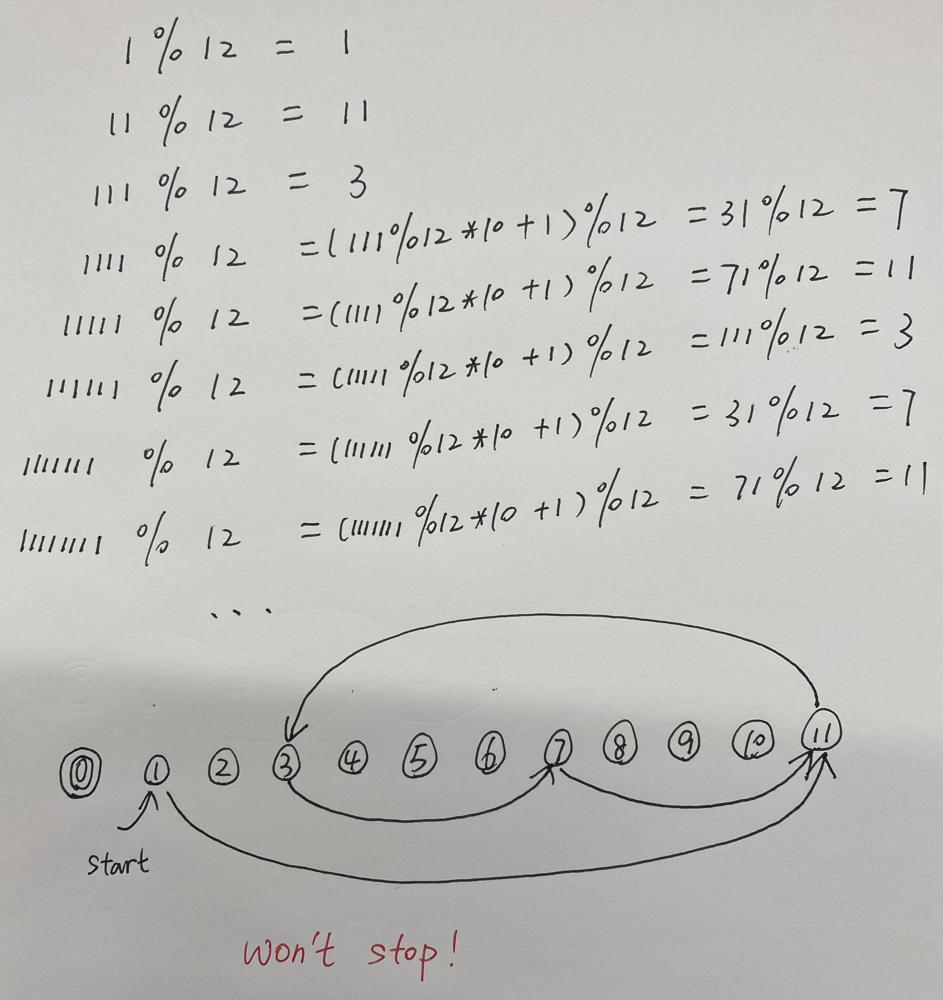 1 % 12 = 1
11 % 12 = 11
111 % 12 = 3
1111 % 12 = (111%12*10+1)%12 = 31%12 = 7
11111 % 12 = (1111%12*10+1)%12 = 71%12 = 11
111111 % 12 = (11111%12*10+1)%12 = 111%12 = 3
1111111 % 12 = (111111%12*10+1)%12 = 31%12 = 7
11111111 % 12 = (1111111%12*10+1)%12 = 71%12 = 11
...
0 1 2 3 4 5 6 7 8 9 10 11
start
won't stop!